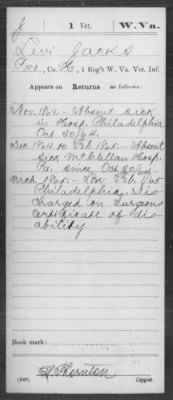 J 1 Vet. W. Va.
Levi Jacks
Pvt, Co. H, 1 Reg't W. Va. Vet. Inf.
Appears on Returns as follows:
Nov. 1864 - Absent sick
in Hosp. Philadelphia
Oct 20/64.
Dec 1864 to Feb 1865 - Absent
sick McClellan Hosp.
Pa. since Oct 20/64
Mch 1865 - Feb. 1/65
Philadelphia, Dis
charged on Surgeon
Certificate of dis
ability
Book mark:
Thornton
Copyist.